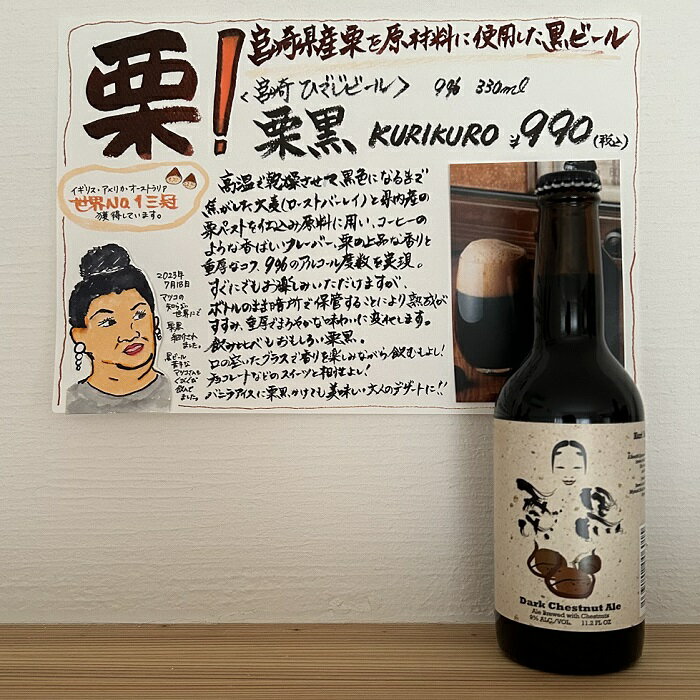 栗！
宮崎県産栗を原材料に使用した黒ビール
<宮崎ひでじビール> 9% 330ml
栗黒 KURIKURO ¥990(税込)
イギリス・アメリカ・オーストラリア
世界No.1三冠
獲得しています。
高温で乾燥させて黒色になるまで
焦がした大麦(ローストバーレイ)と県内産の
栗ペーストを仕込み原料に用い、コーヒーの
ような香ばしいフレーバー、栗の上品な香りと
重厚なコク、9%のアルコール度数を実現。
すぐにでもお楽しみいただけますが、
ボトルのまま暗所で保管することにより熟成が
すすみ、重厚でまろやかな味わいに変化します。
飲み比べもおもしろい栗黒。
口の空いたグラスで香りを楽しみながら飲むもよし！
チョコレートなどのスイーツと相性よし！
バニラアイスに栗黒、かけても美味しい大人のデザートに！！
2023年
7月18日
マツコの
知らない
世界にて
栗黒
紹介され
ました。
黒ビール
苦手な
マツコさんも
ぐびぐび
飲んで
ました。
栗黒
Dark Chestnut Ale
Ale Brewed with Chestnuts
9% ALC/VOL. 11.2 FL OZ